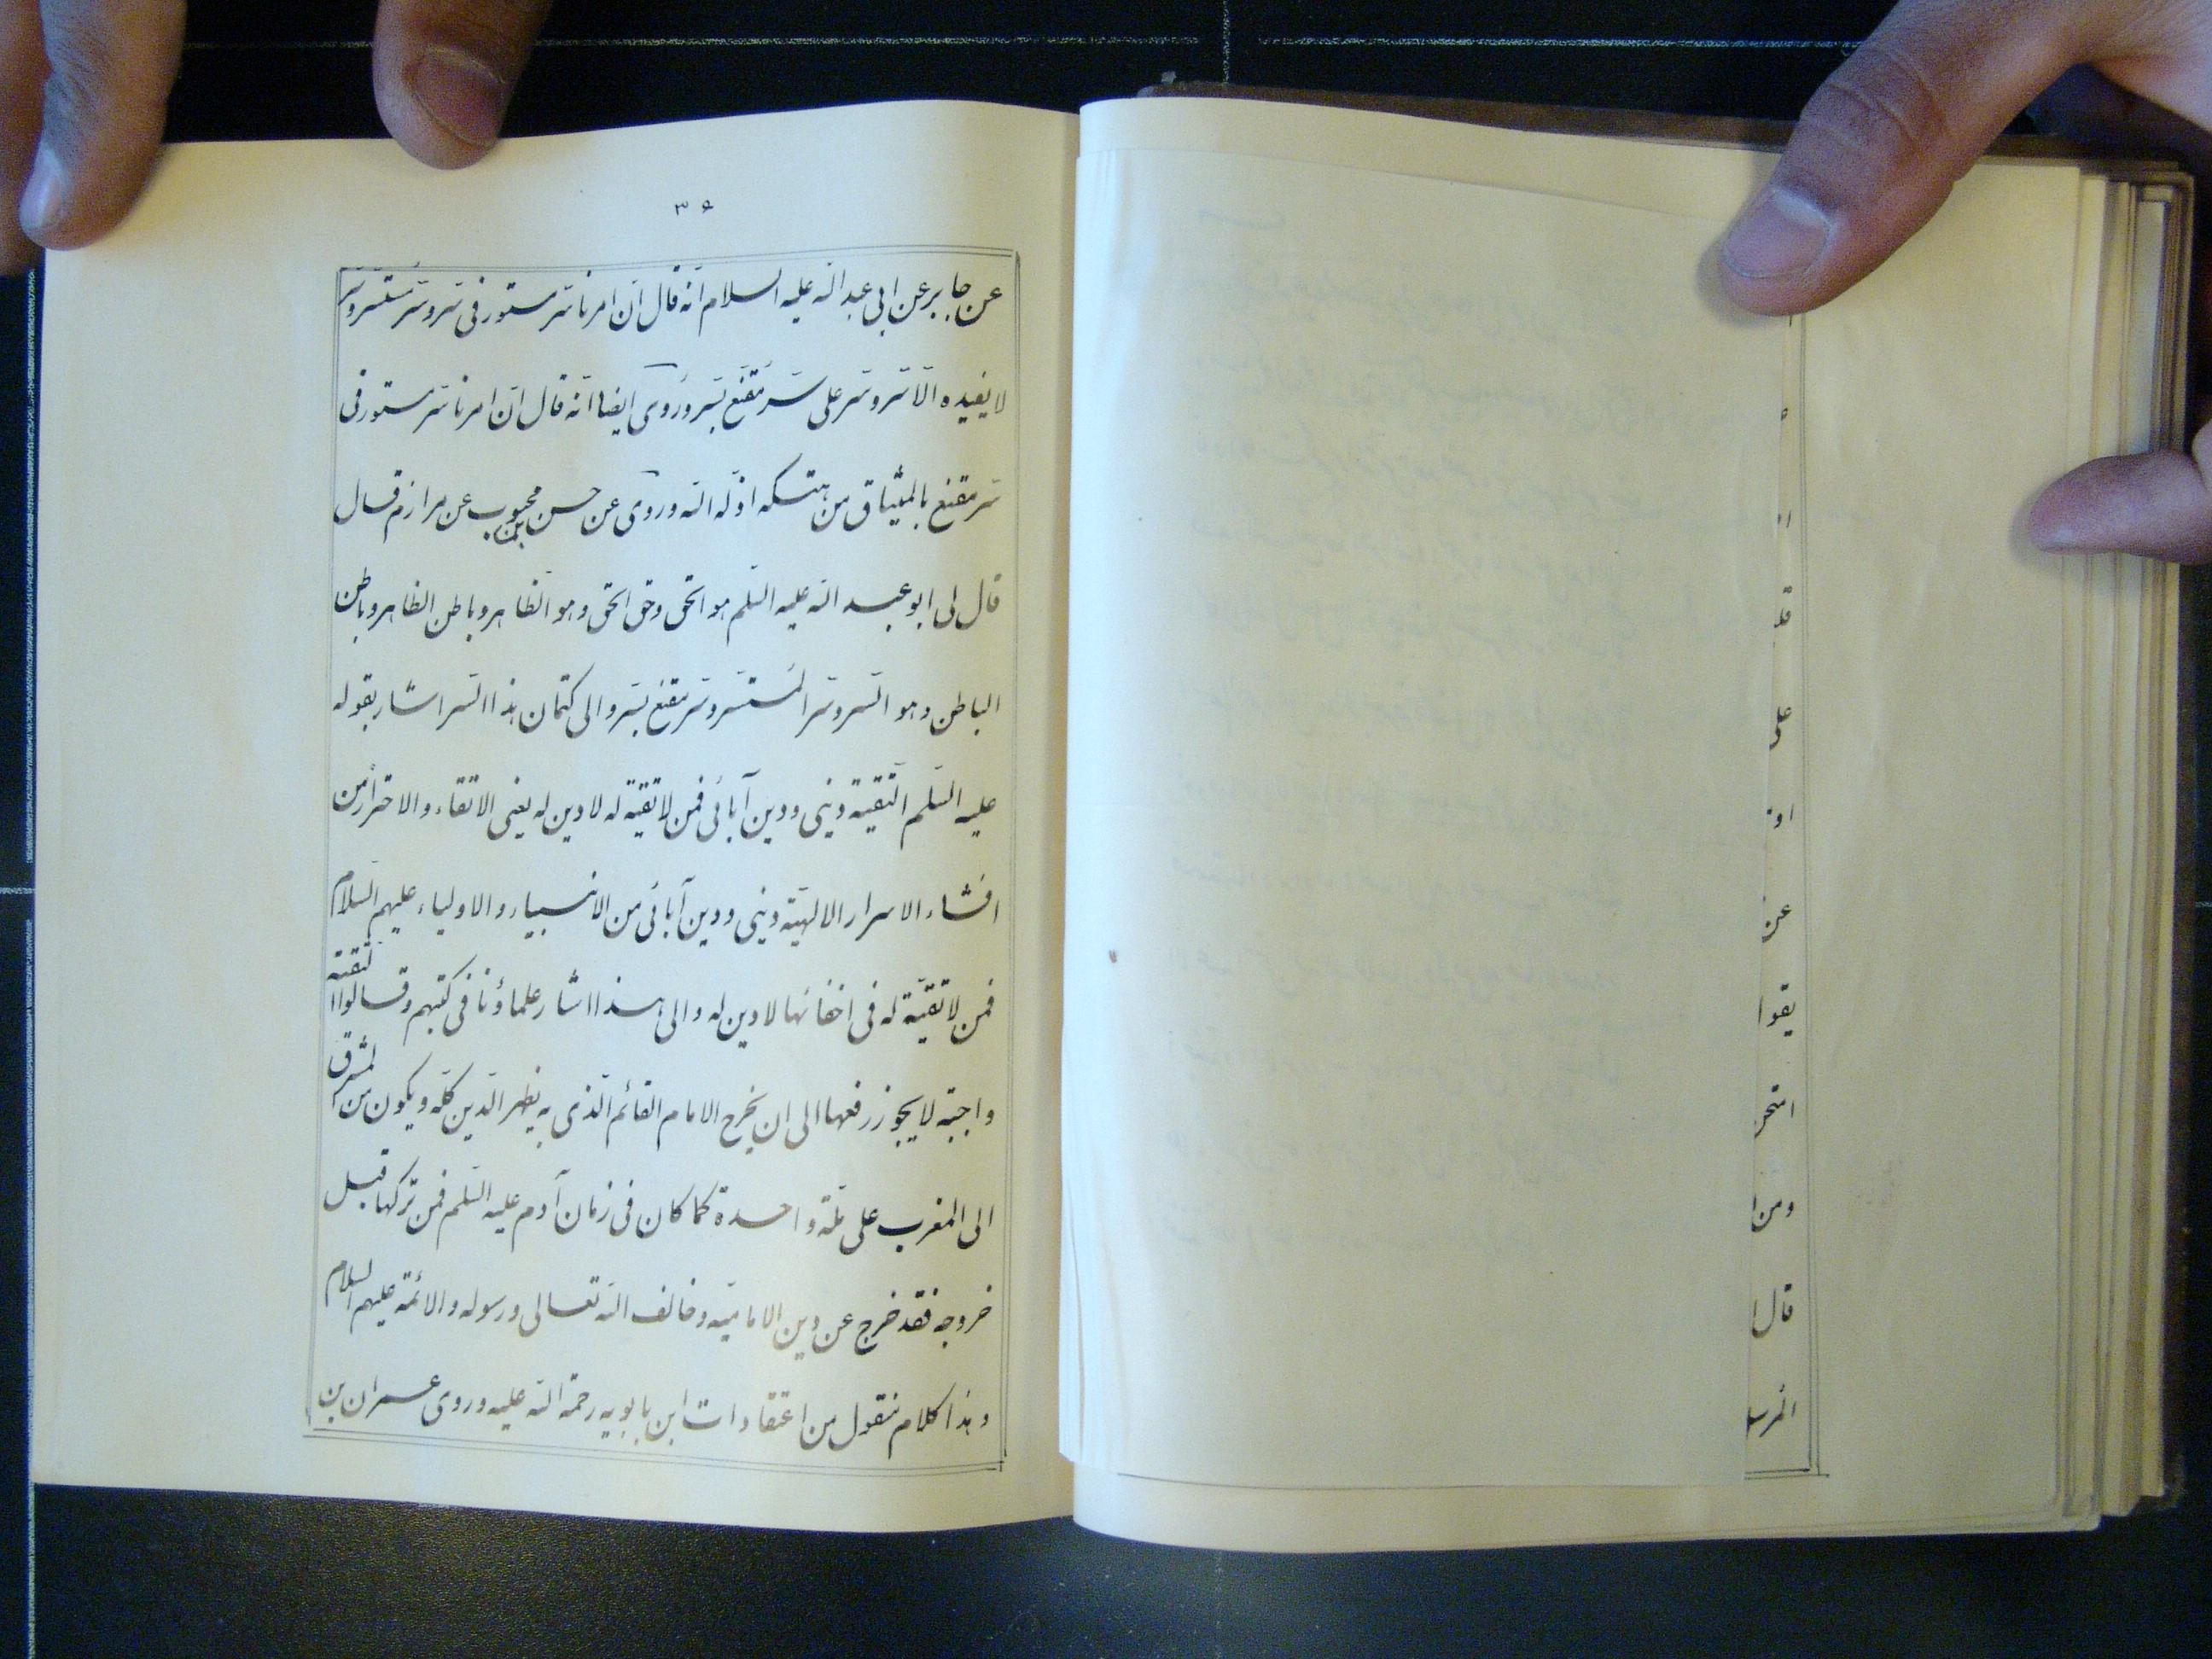 ۳۶
عن جابر عن ابی عبد الله علیه السلام انه قال ان امرنا سرّ مستور فی سرّ وسرّ مستسر وسرّ
لا یفیده الّا سرّ وسرّ علی سرّ مقنّع بسرّ وروی ایضا انّه قال انّ امرنا سرّ مستور فی
سرّ مقنع بالمیثاق من هتکه اذلّه الله وروی عن حسن بن محبوب عن مرازم قال
قال لی ابو عبد الله علیه السّلم هو الحق وحق الحق وهو الظاهر وباطن الظاهر وباطن
الباطن وهو السّر وسرّ المستسر وسرّ مقنع بسرّ والی کتمان هذا السّر اشار بقوله
علیه السّلم التّقیة دینی ودین آبائی فمن لا تقیة له لا دین له یعنی الاتقاء والاحتراز من
افشاء الاسرار الالهیّة دینی ودین آبائی من الانبیاء والاولیاء علیهم السّلام
فمن لا تقیّة له فی اخفائها لا دین له والی هذا اشار علماؤنا فی کتبهم وقالوا التقیة
واجبة لا یجوز رفعها الی ان یخرج الامام القائم الّذی به یظهر الدّین کلّه ویکون من المشرق
الی المغرب علی ملّة واحدة کما کان فی زمان آدم علیه السّلم فمن ترکها قبل
خروجه فقد خرج عن دین الامامیّة وخالف الله تعالی ورسوله والائمّة علیهم السلام
وهذا کلام منقول من اعتقادات ابن بابویه رحمة الله علیه وروی عمران بن
علی
عن
یقوا
ومن
قال